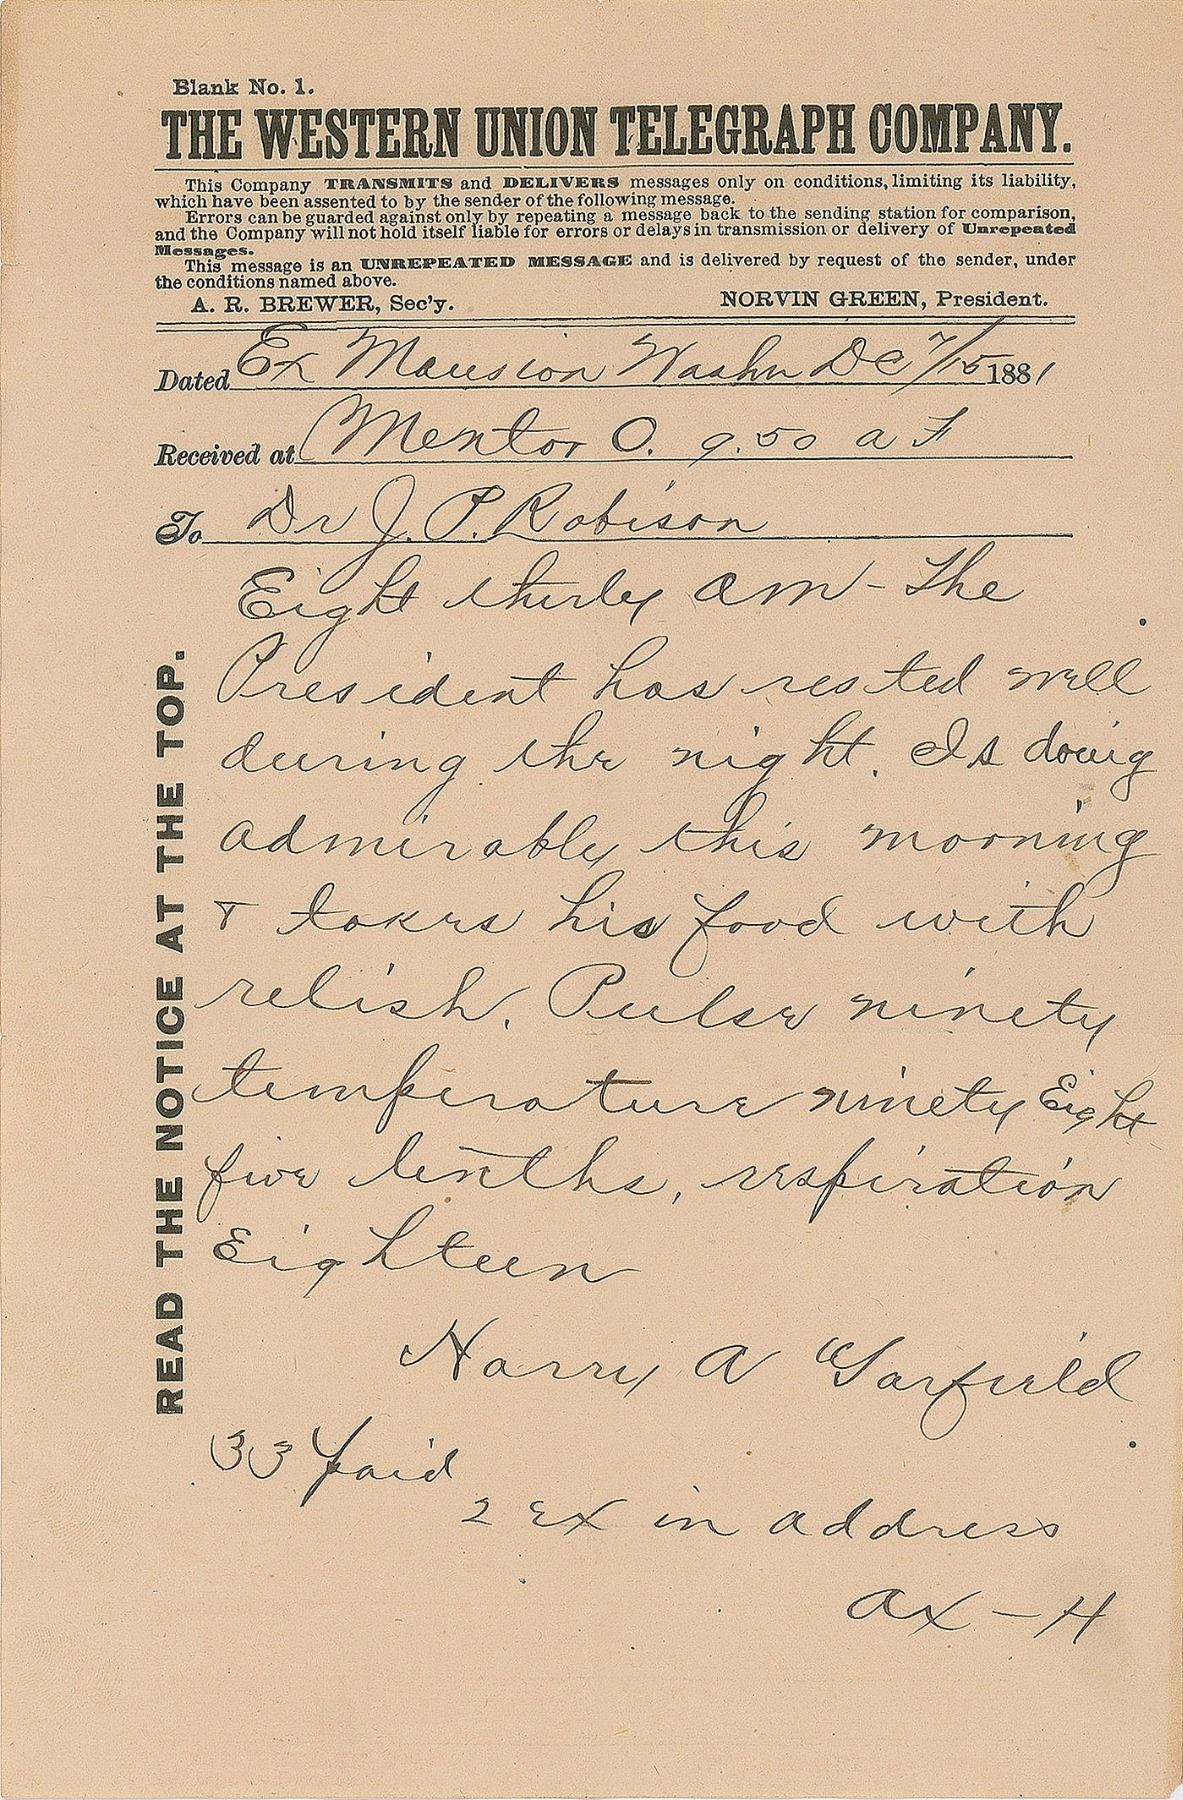 Blank No. 1.
THE WESTERN UNION TELEGRAPH COMPANY.
This Company TRANSMITS and DELIVERS messages only on conditions, limiting its liability,
which have been assented to by the sender of the following message.
Errors can be guarded against only by repeating a message back to the sending station for comparison,
and the Company will not hold itself liable for errors or delays in transmission or delivery of Unrepeated
Messages.
This message is an UNREPEATED MESSAGE and is delivered by request of the sender, under
the conditions named above.
A. R. BREWER, Sec'y. NORVIN GREEN, President.
Dated Ex Mansion Washn DC 7/15 1881
Received at Mentor O. 9.50 a
To Dr J. P. Robison
Eight thirty am - The
President has rested well
during the night. Is doing
admirably this morning
& takes his food with
relish. Pulse ninety
temperature ninety Eight
five tenths, respiration
Eighteen
Harry A Garfield
33 paid
2 ex in address
ax - H
READ THE NOTICE AT THE TOP.